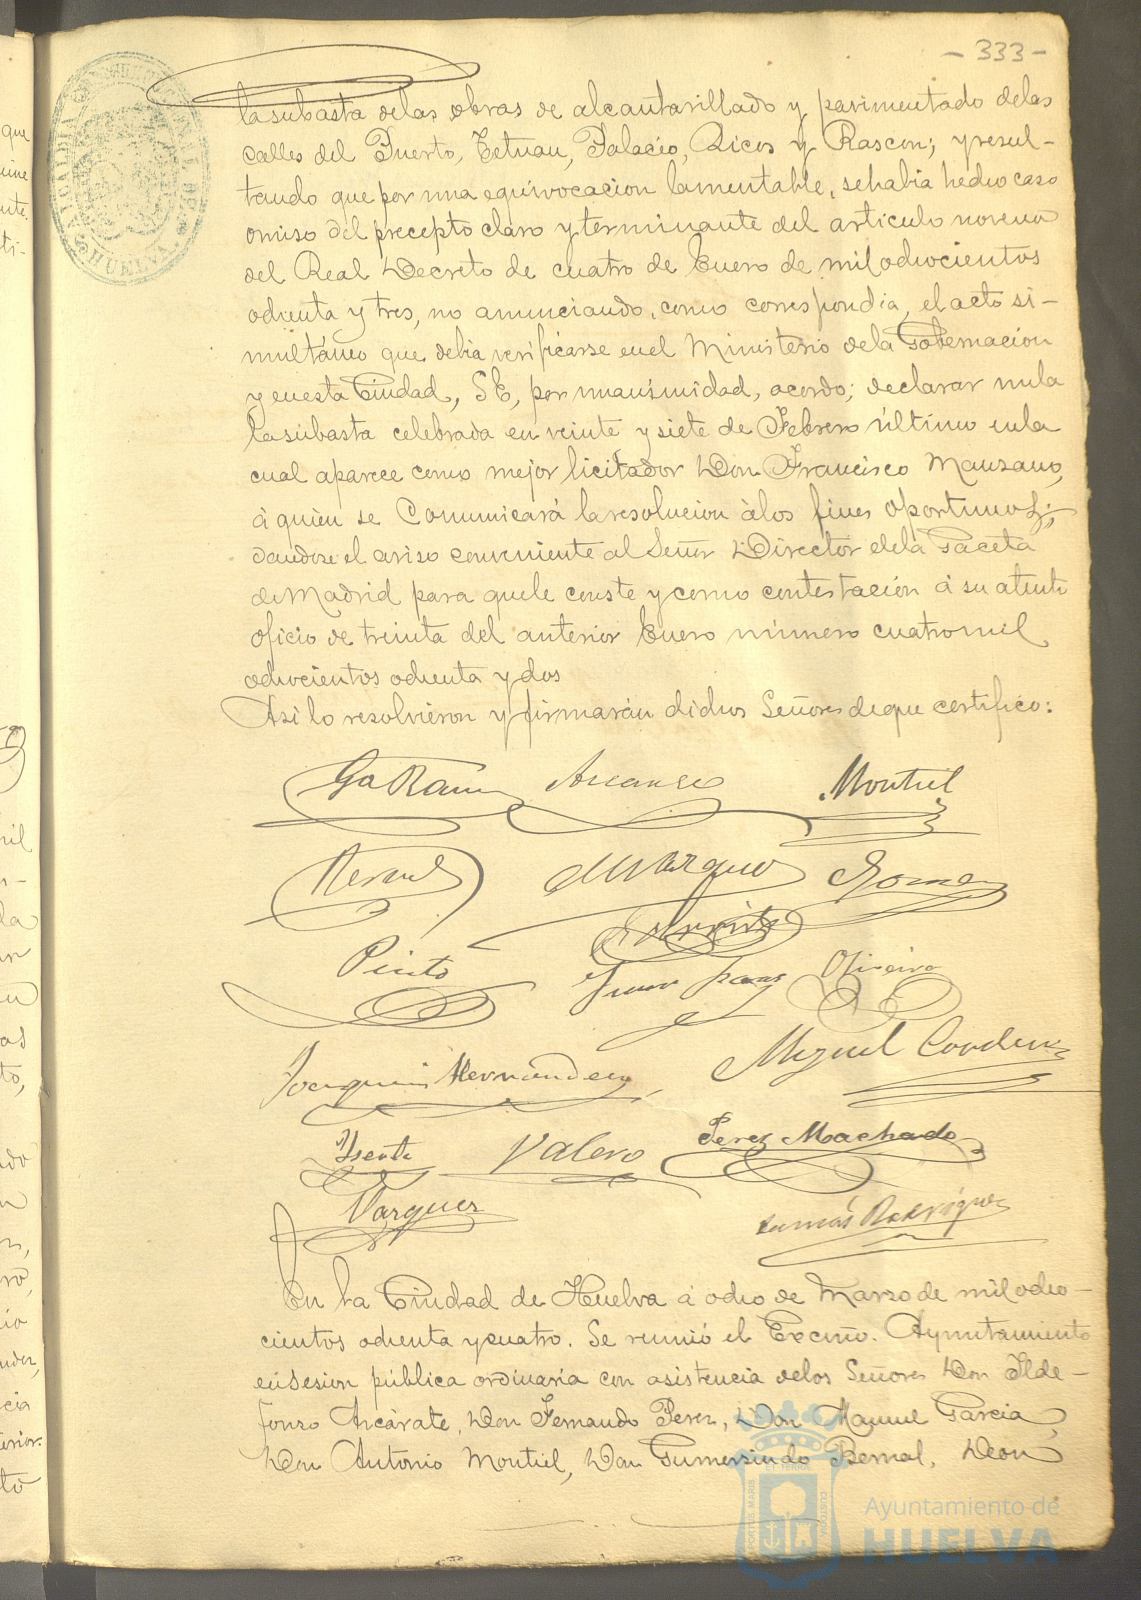 - 333 -
ALCALDIA CONSTITUCIONAL DE HUELVA
la subasta de las obras de alcantarillado y pavimentado de las
calles del Puerto, Tetuan, Palacio, Ricos y Rascon; y resul-
tando que por una equivocacion lamentable, se habia hecho caso
omiso del precepto claro y terminante del articulo noveno
del Real Decreto de cuatro de Enero de mil ochocientos
ochenta y tres, no anunciando, como correspondia, el acto si-
multáneo que debia verificarse en el Ministerio de la Gobernacion
y en esta Ciudad, S.E, por unanimidad, acordo; declarar nula
la subasta celebrada en veinte y siete de Febrero último en la
cual aparece como mejor licitador Don Francisco Manzano,
á quien se Comunicará la resolucion á los fines oportunos;
dandose el aviso conveniente al Señor Director de la Gaceta
de Madrid para que le conste y como contestacion á su atento
oficio de treinta del anterior Enero número cuatro mil
ochocientos ochenta y dos
Asi lo resolvieron y firmarán dichos Señores de que certifico:
Montiel
Bernal Marquez Gomez
Pinto Oliveira
Joaquin Hernandez Miguel Cordero
Ysento Valero Perez Machado
Vazquez Tomás Rodriguez
En la Ciudad de Huelva á ocho de Marzo de mil ocho-
cientos ochenta y cuatro. Se reunió el Excmo. Ayuntamiento
en sesion pública ordinaria con asistencia de los Señores Don Ilde-
fonso Arcárate, Don Fernando Perez, Don Manuel Garcia,
Don Antonio Montiel, Don Gumersindo Bernal, Don
Ayuntamiento de
HUELVA
PORTUS MARIS ET TERRAE CUSTODIA